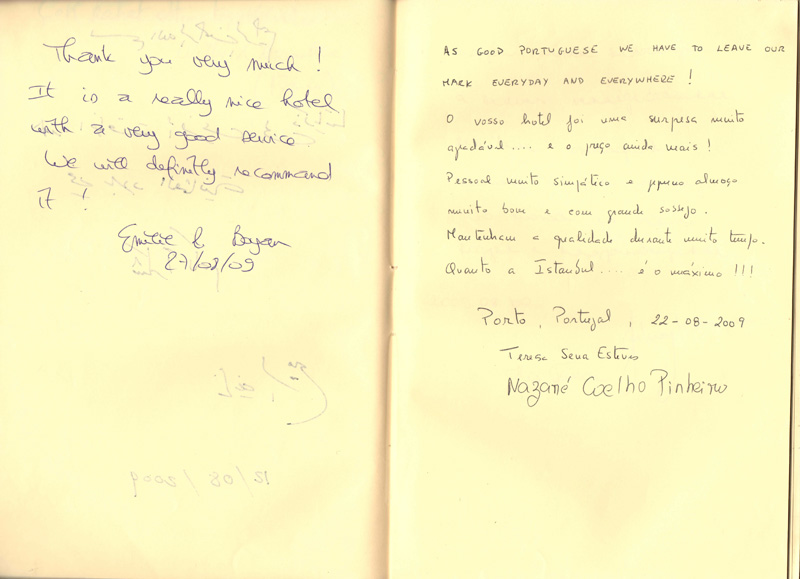 Thank you very much !
It is a really nice hotel
with a very good service
We will definitly recommand
IT !
Emilie &
27/08/09
AS GOOD PORTUGUESE WE HAVE TO LEAVE OUR
MARK EVERYDAY AND EVERYWHERE !
O vosso hotel foi uma surpresa muito
agradável.... e o preço ainda mais !
Pessoal muito simpático e pequeno almoço
muito bom e com grande sossego.
Mantenham a qualidade durante muito tempo.
Quanto a Istanbul.... é o máximo !!!
Porto, Portugal, 22-08-2009
Teresa Sena Esteves
Nazaré Coelho Pinheiro
12/08/2009